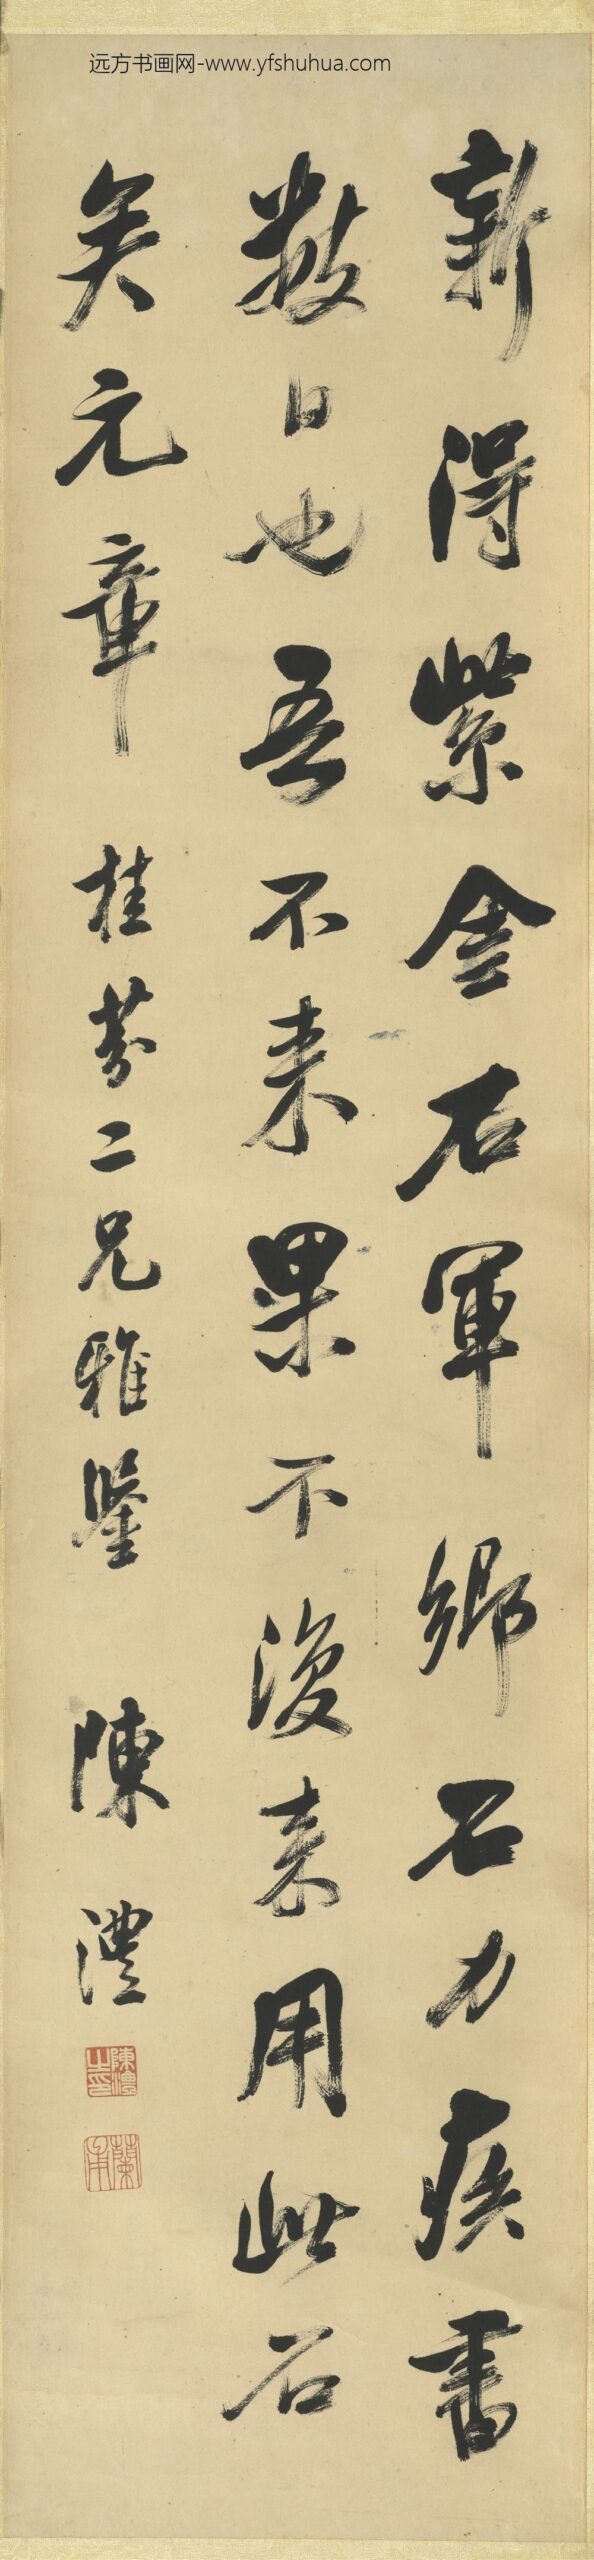 远方书画网-www.yfshuhua.com
新得紫金石軍鄉石力疾書
數日也吾不来果不復来用此石
矣元章
桂芬二兄雅鑒
陳澧
陳澧之印
蘭甫